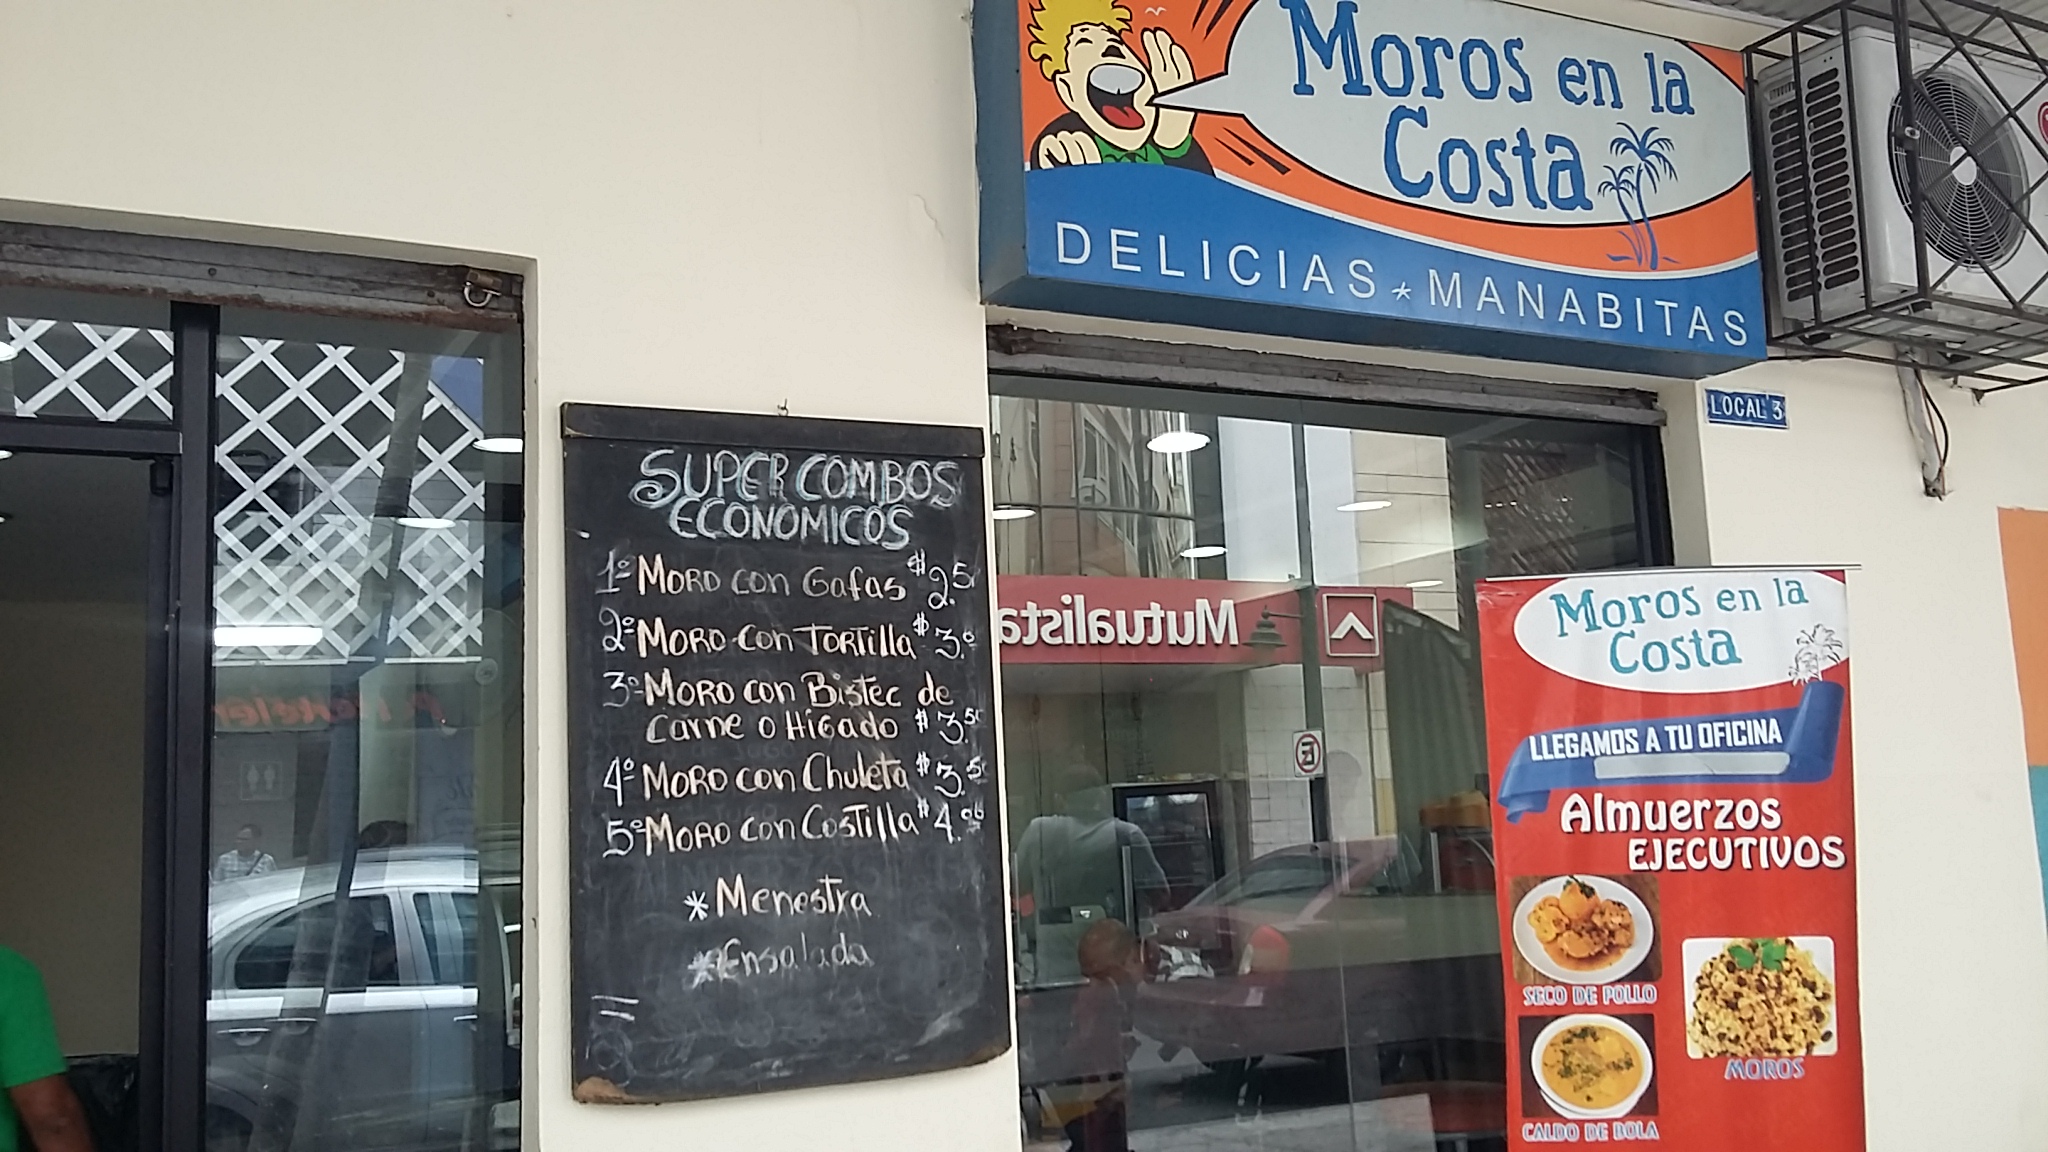 Moros en la
Costa
DELICIAS * MANABITAS
LOCAL 3
SUPER COMBOS
ECONOMICOS
1º MORO CON Gafas $2.5
2º MORO CON TORTILLA $3.º
3º MORO CON Bistec de
Carne o Higado $3.50
4º MORO CON Chuleta $3.50
5º MORO CON Costilla $4.00
* Menestra
* Ensalada
Mutualista
Moros en la
Costa
LLEGAMOS A TU OFICINA
Almuerzos
EJECUTIVOS
SECO DE POLLO
MOROS
CALDO DE BOLA